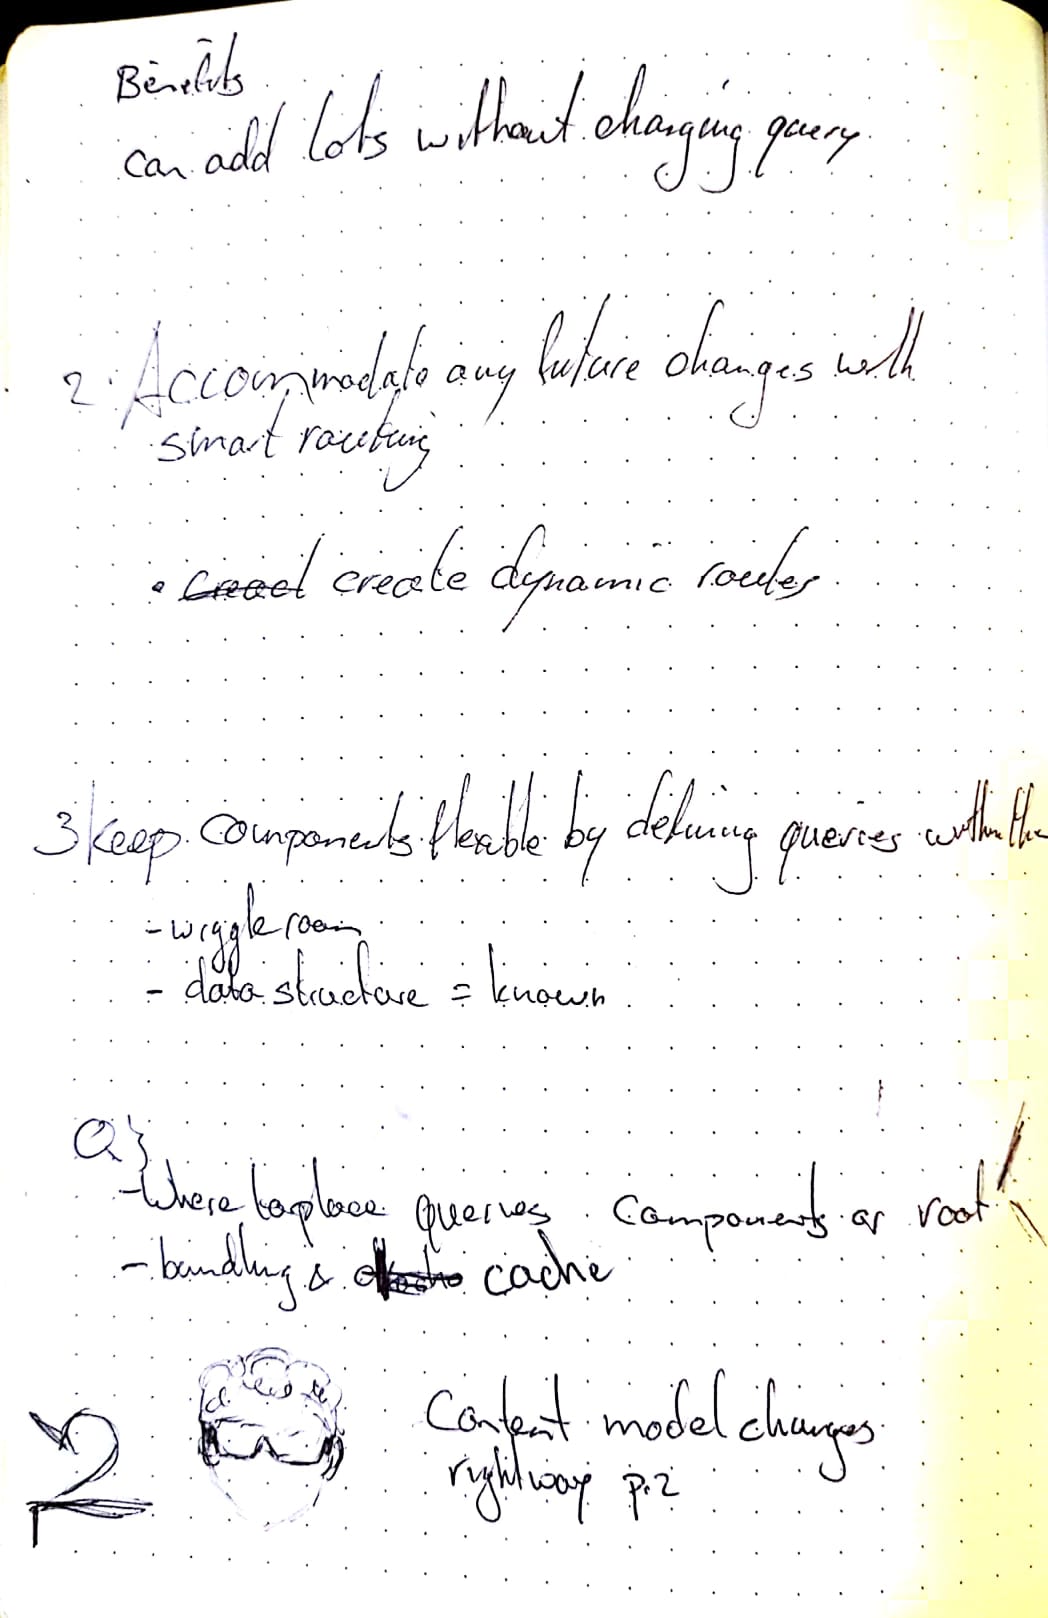 Benefits
can add lots without changing query
2. Accommodate any future changes with
smart routing
• create dynamic routes
3 keep components flexible by defining queries within the
- wiggle room
- data structure = known
Q}
- Where to place queries. Components or root
- bundling & cache
2
Content model changes
right way p.2